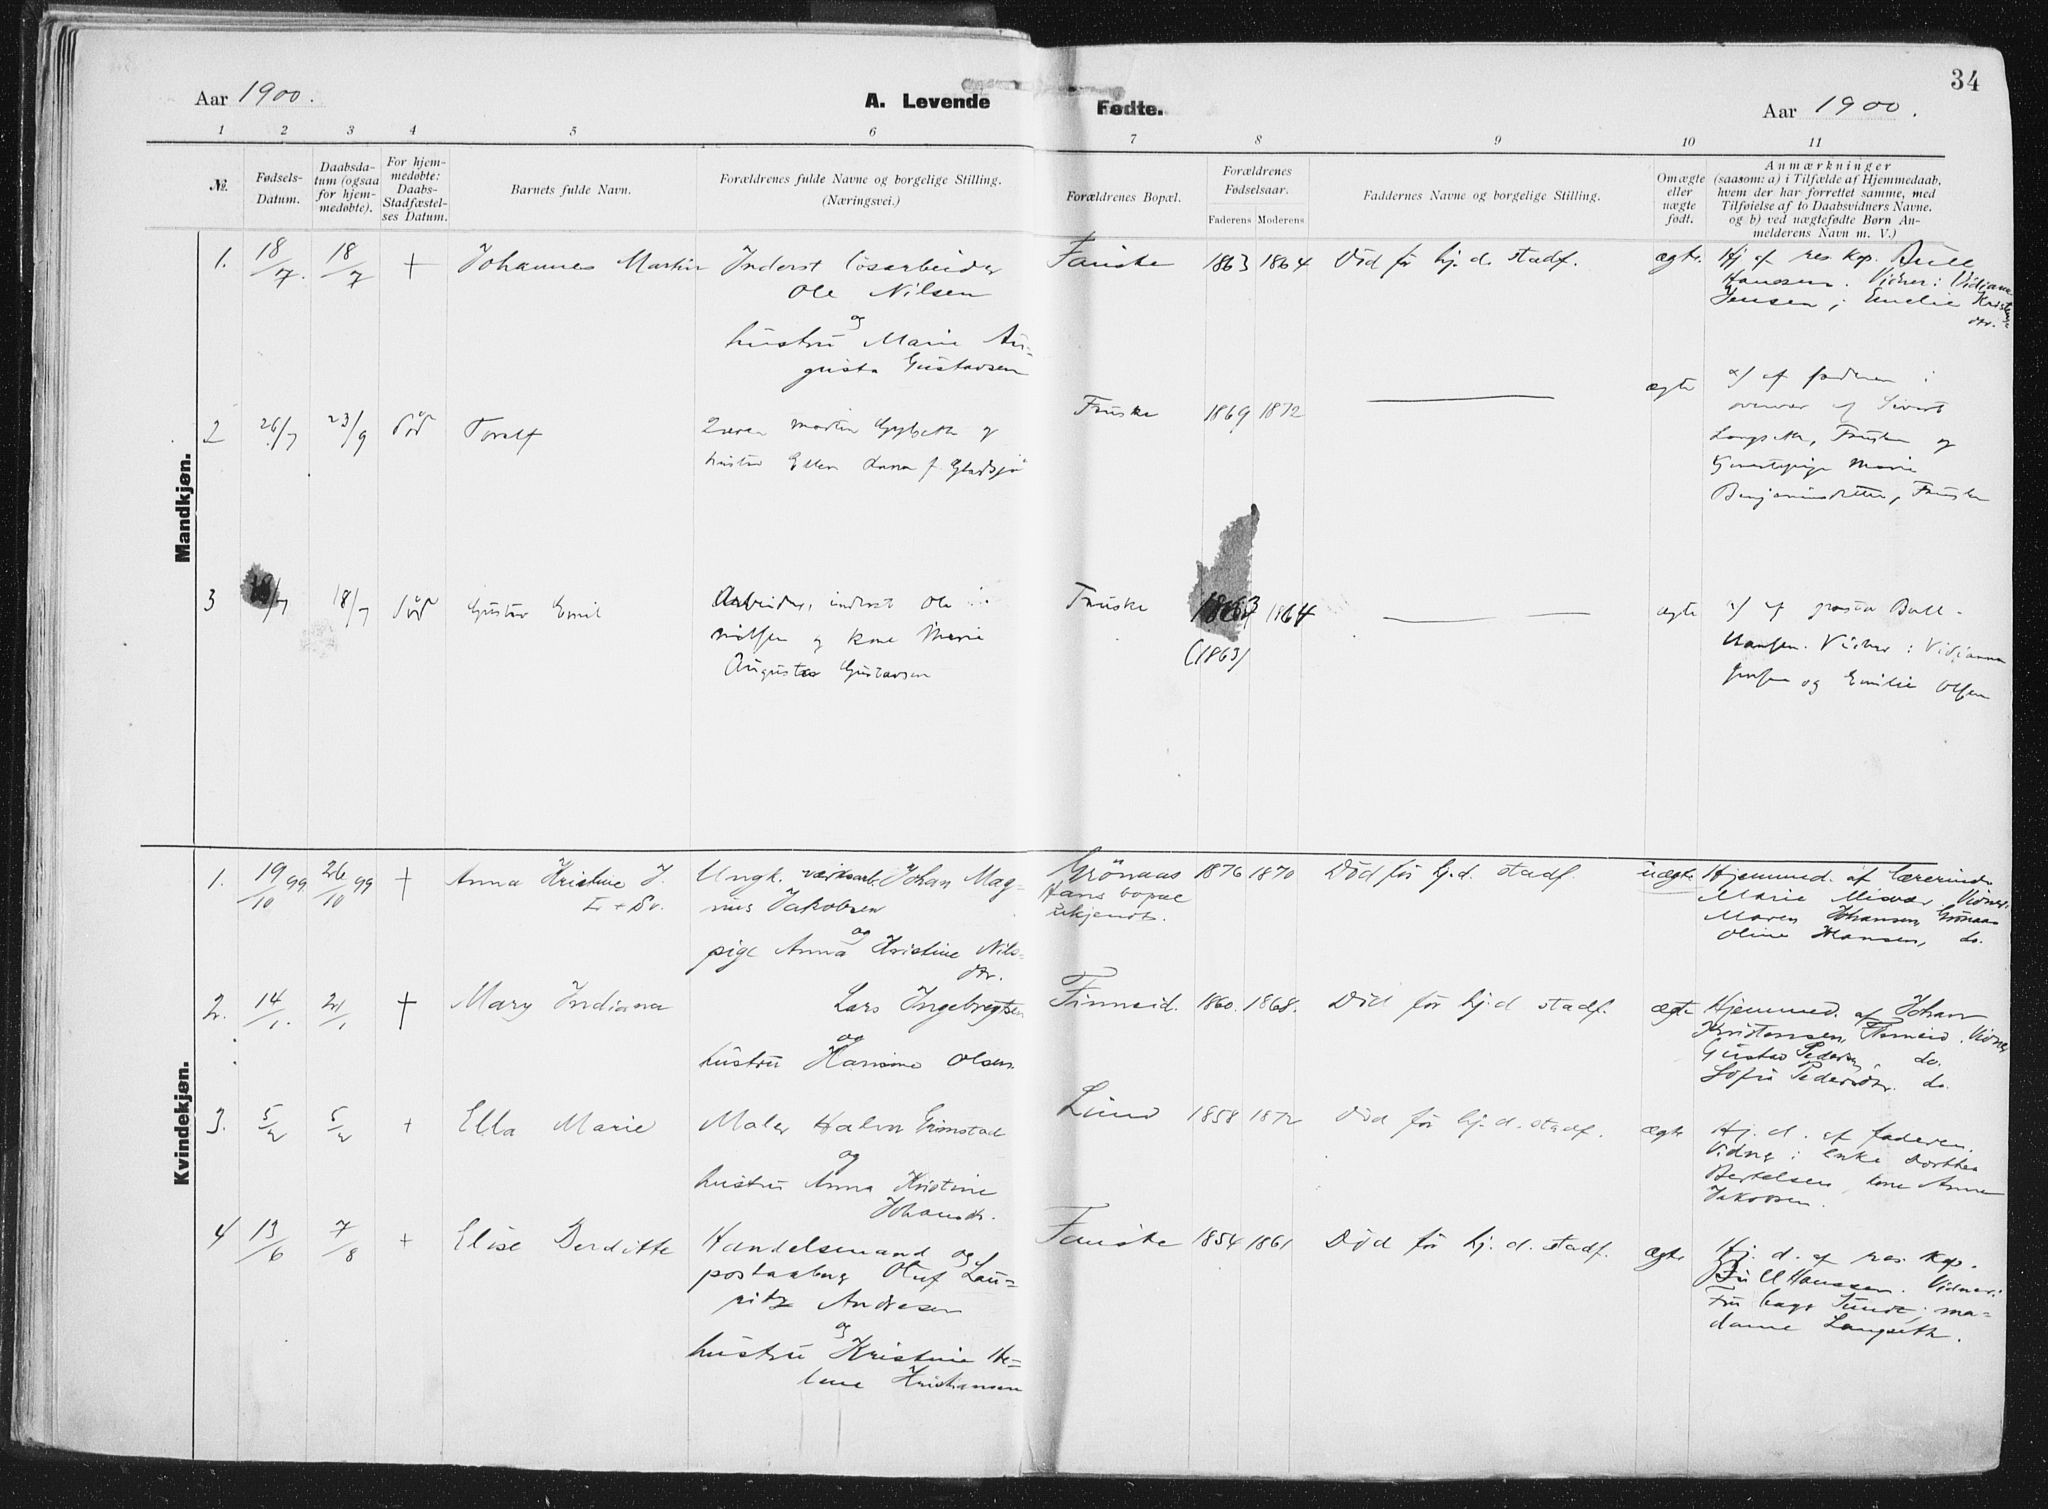 34
Aar 1900.
A. Levende
Fødte.
Aar 1900.
1 2 3 4 5 6 7 8 9 10 11
№.
Fødsels-
Datum.
Daabsda-
tum (ogsaa
for hjem-
medøbte).
For hjem-
medøbte:
Daabs-
Stadfæstel-
ses Datum.
Barnets fulde Navn.
Forældrenes fulde Navne og borgelige Stilling.
(Næringsvei.)
Forældrenes Bopæl.
Forældrenes
Fødselsaar.
Faderens Moderens
Faddernes Navne og borgelige Stilling.
Om ægte
eller
uægte
født.
Anmærkninger
(saasom: a) i Tilfælde af Hjemmedaab,
hvem der har forrettet samme, med
Tilføielse af to Daabsvidners Navne.
og b) ved uægtefødte Børn An-
melderens Navn m. V.)
Mandkjøn.
1. 18/7. 18/7 + Johannes Martin Inderst løsarbeider Fauske 1863 1864 Død før hj. d. stadf. ægte. Hj af res. Kap. Bull
Ole Nilsen
Hanssen. Vidner: Vidjana
og
Jensen; Emelie Kristens
dtr.
hustru Marie Au-
gusta Gustavsen
2 26/7 23/9 død Toralf
martin Gylseth og
hustru Ellen Anna f.
Fauske 1869 1872 ægte
a/ af faderen i
overvær af Sivert
Langseth, Fauske og
Marie
Benjaminsdatter, Fauske
3 18/7 18/7 død Gustav Emil Arbeider, inderst Ole
Nilssen og kone Marie
Augusta Gustavsen
Fauske 1863 1864 ægte
(1863)
a/ af prosten Bull-
Hanssen. Vidner: Vidjanna
Jenssen og Emilie Olsen
Kvindekjøn.
1. 19/10 99 26/10 99 + Anna Kristine J. Ungk. værksarb. Johan Mag-
nus Jakobsen
og
pige Anna Kristine Nils-
dtr.
Grönaas 1876 1870 Død før hj. d. stadf. uægte Hjemmed. af lærerinde
Hans bopæl
ukjendt.
Marie Misvær. Vidner:
Maren Johansen, Grønaas
Oline Hansen, do.
2. 14/1. 21/1 + Mary Indiana Lars Ingebrigtsen
og
hustru Hansine Olsen
Finneid. 1860. 1868. Død før hj. d stadf. ægte Hjemmed. af Johan
Kristensen, Finneid. Vidner
Gustav Pedersen, do.
Sofie Pedersdtr. do.
3. 5/2 5/2 + Ella Marie Maler Halvor Grimstad
og
hustru Anna Kristine
Johansdtr.
Lund 1858 1872 Død før hj. d. stadf. ægte Hj. d. af faderen.
Vidner: enke Dorthea
Bertelsen, kone Anna
Jakobsen.
4 13/6 7/8 + Elise Berditte Handelsmand og
postaabner Oluf Lau-
ritz Andresen
og
hustru Kristine He-
lene Kristiansen
Fauske 1854 1861 Død før hj. d. stadf. ægte Hj. d. af res. Kap.
Bull Hanssen. Vidner:
Fru Sundt; ma-
dame Langseth.